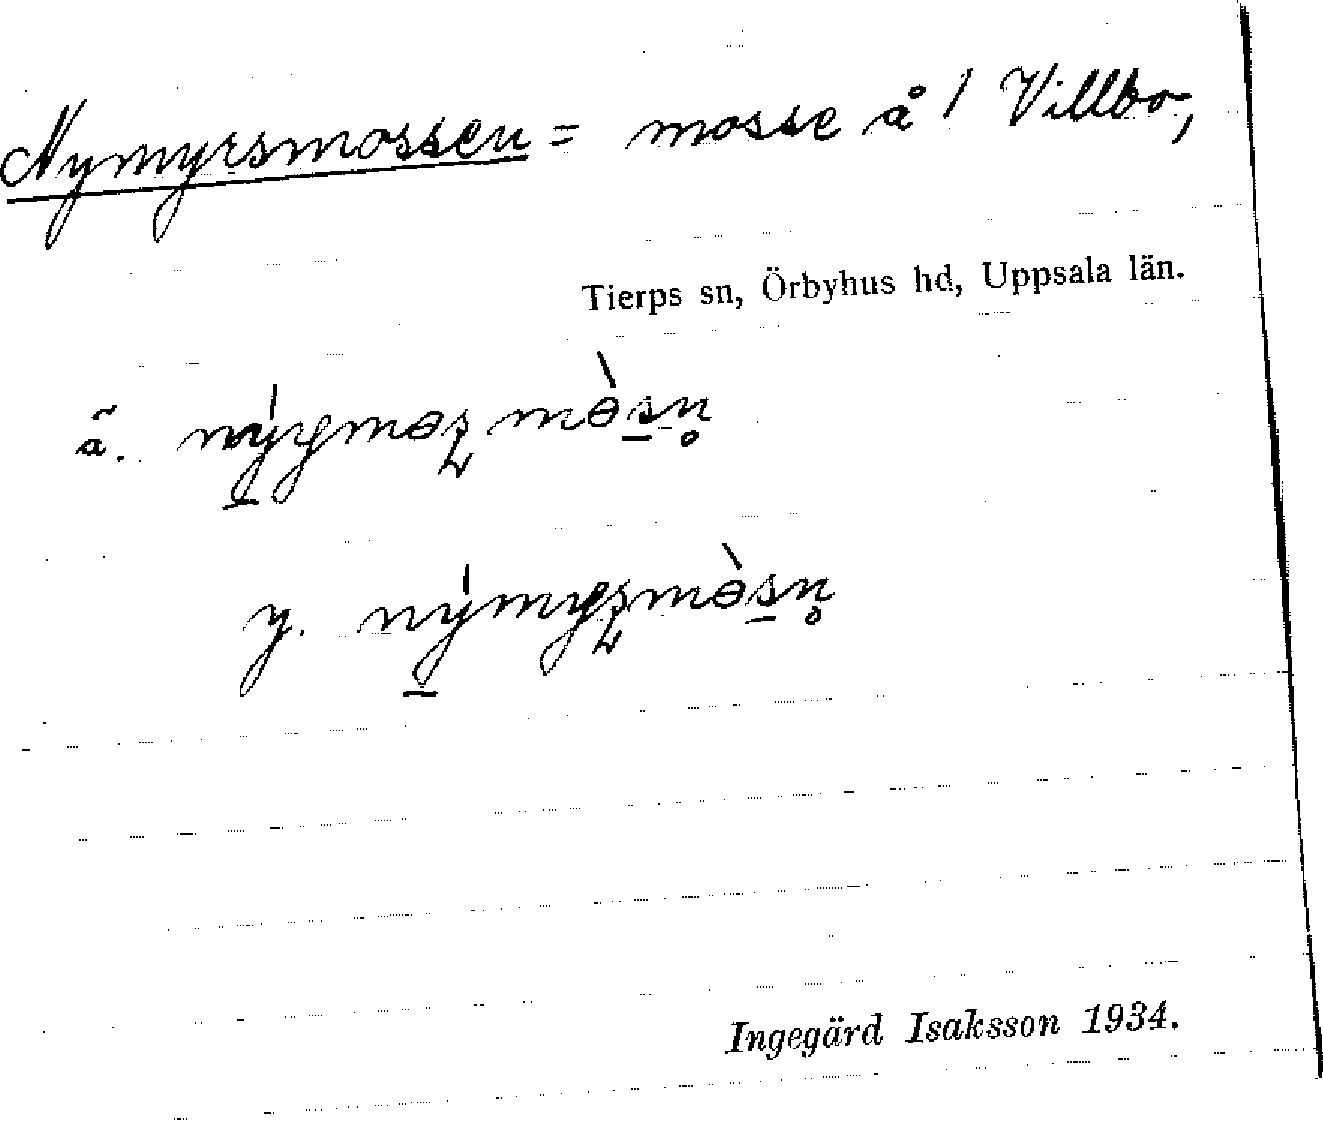 Nymyrsmossen = mosse å 1 Villbo,
Tierps sn, Örbyhus hd, Uppsala län.
ä.
y.
Ingegärd Isaksson 1934.